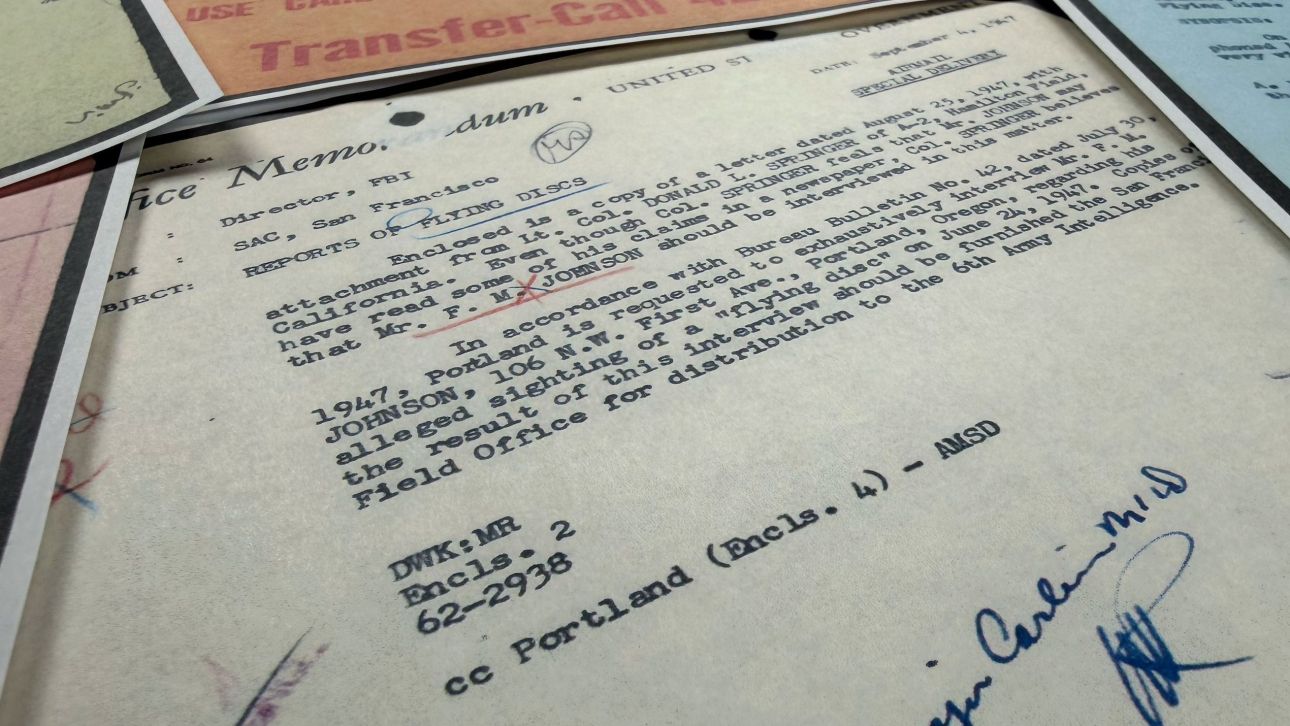 USE
Transfer-Call
Flying Disc.
SYNOPSIS.
on
phoned
very
UNITED ST
ice Memo dum
DATE: September 4, 1947
AIRMAIL
SPECIAL DELIVERY
: Director, FBI
OM : SAC, San Francisco
BJECT: REPORTS OF FLYING DISCS
Enclosed is a copy of a letter dated August 25, 1947, with
attachment from Lt. Col. DONALD L. SPRINGER of A-2, Hamilton Field,
California. Even though Col. SPRINGER feels that Mr. JOHNSON may
have read some of his claims in a newspaper, Col. SPRINGER believes
that Mr. F. M. JOHNSON should be interviewed in this matter.
In accordance with Bureau Bulletin No. 42, dated July 30,
1947, Portland is requested to exhaustively interview Mr. F. M.
JOHNSON, 106 N.W. First Ave., Portland, Oregon, regarding his
alleged sighting of a "flying disc" on June 24, 1947. Copies of
the result of this interview should be furnished the San Franc
Field Office for distribution to the 6th Army Intelligence.
DWK:MR
Encls. 2
62-2938
cc Portland (Encls. 4) - AMSD